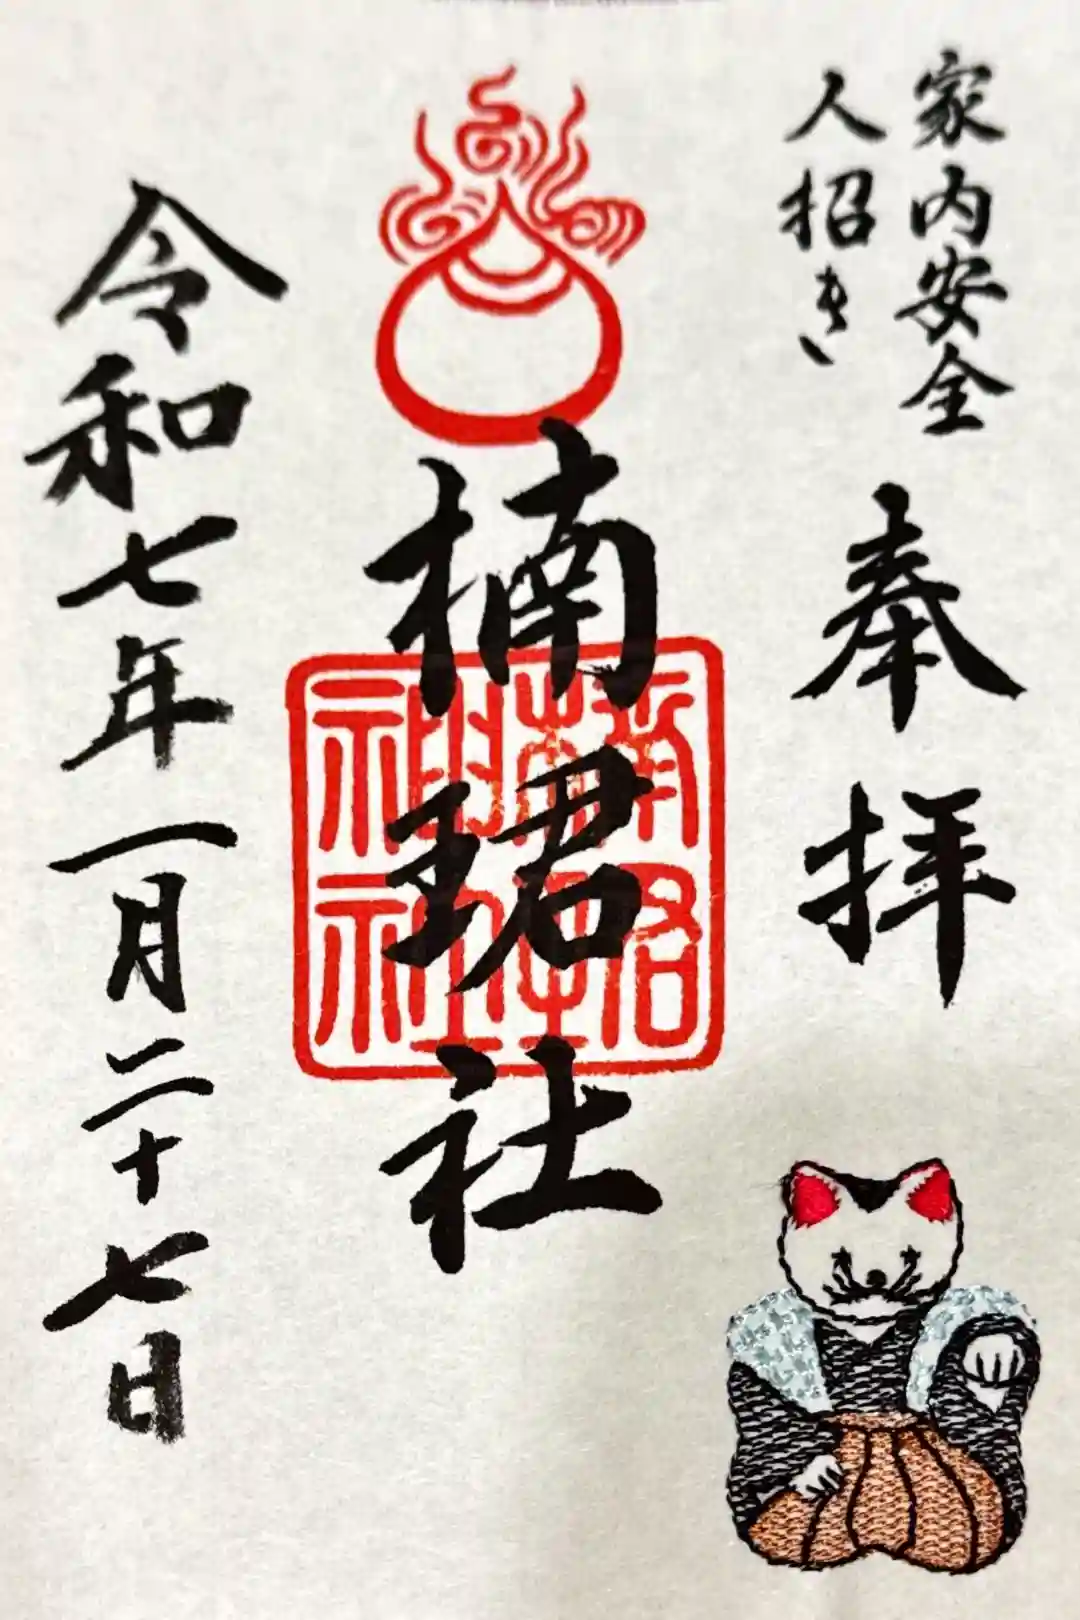 家内安全
人招き
奉拝
楠珺社
令和七年一月二十七日